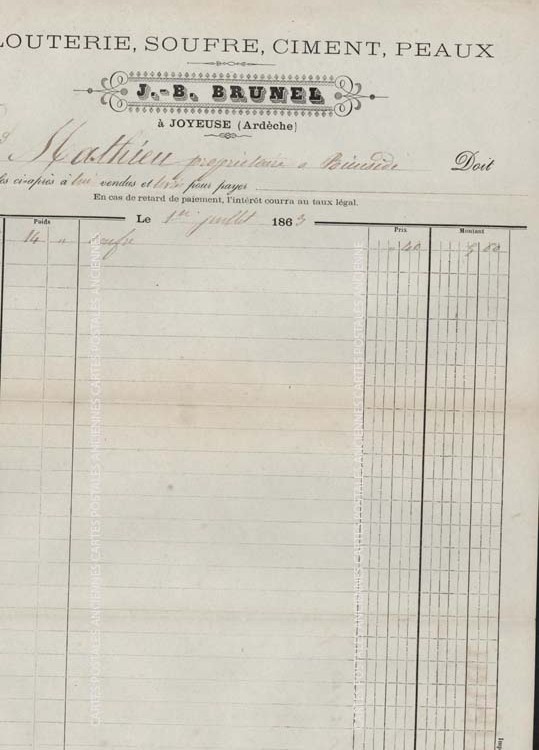 LOUTERIE, SOUFRE, CIMENT, PEAUX
J.-B. BRUNEL
à JOYEUSE (Ardèche)
Mathieu propriétaire a Doit
les ci-après à lui vendus et pour payer
En cas de retard de paiement, l'intérêt courra au taux légal.
Le 1er juillet 1863
Poids Prix Montant
14 " soufre " 40 5 60
CARTES POSTALES ANCIENNES CARTES POSTALES ANCIENNES CARTES POSTALES ANCIENNES
CARTES POSTALES ANCIENNES CARTES POSTALES ANCIENNES CARTES POSTALES ANCIENNES